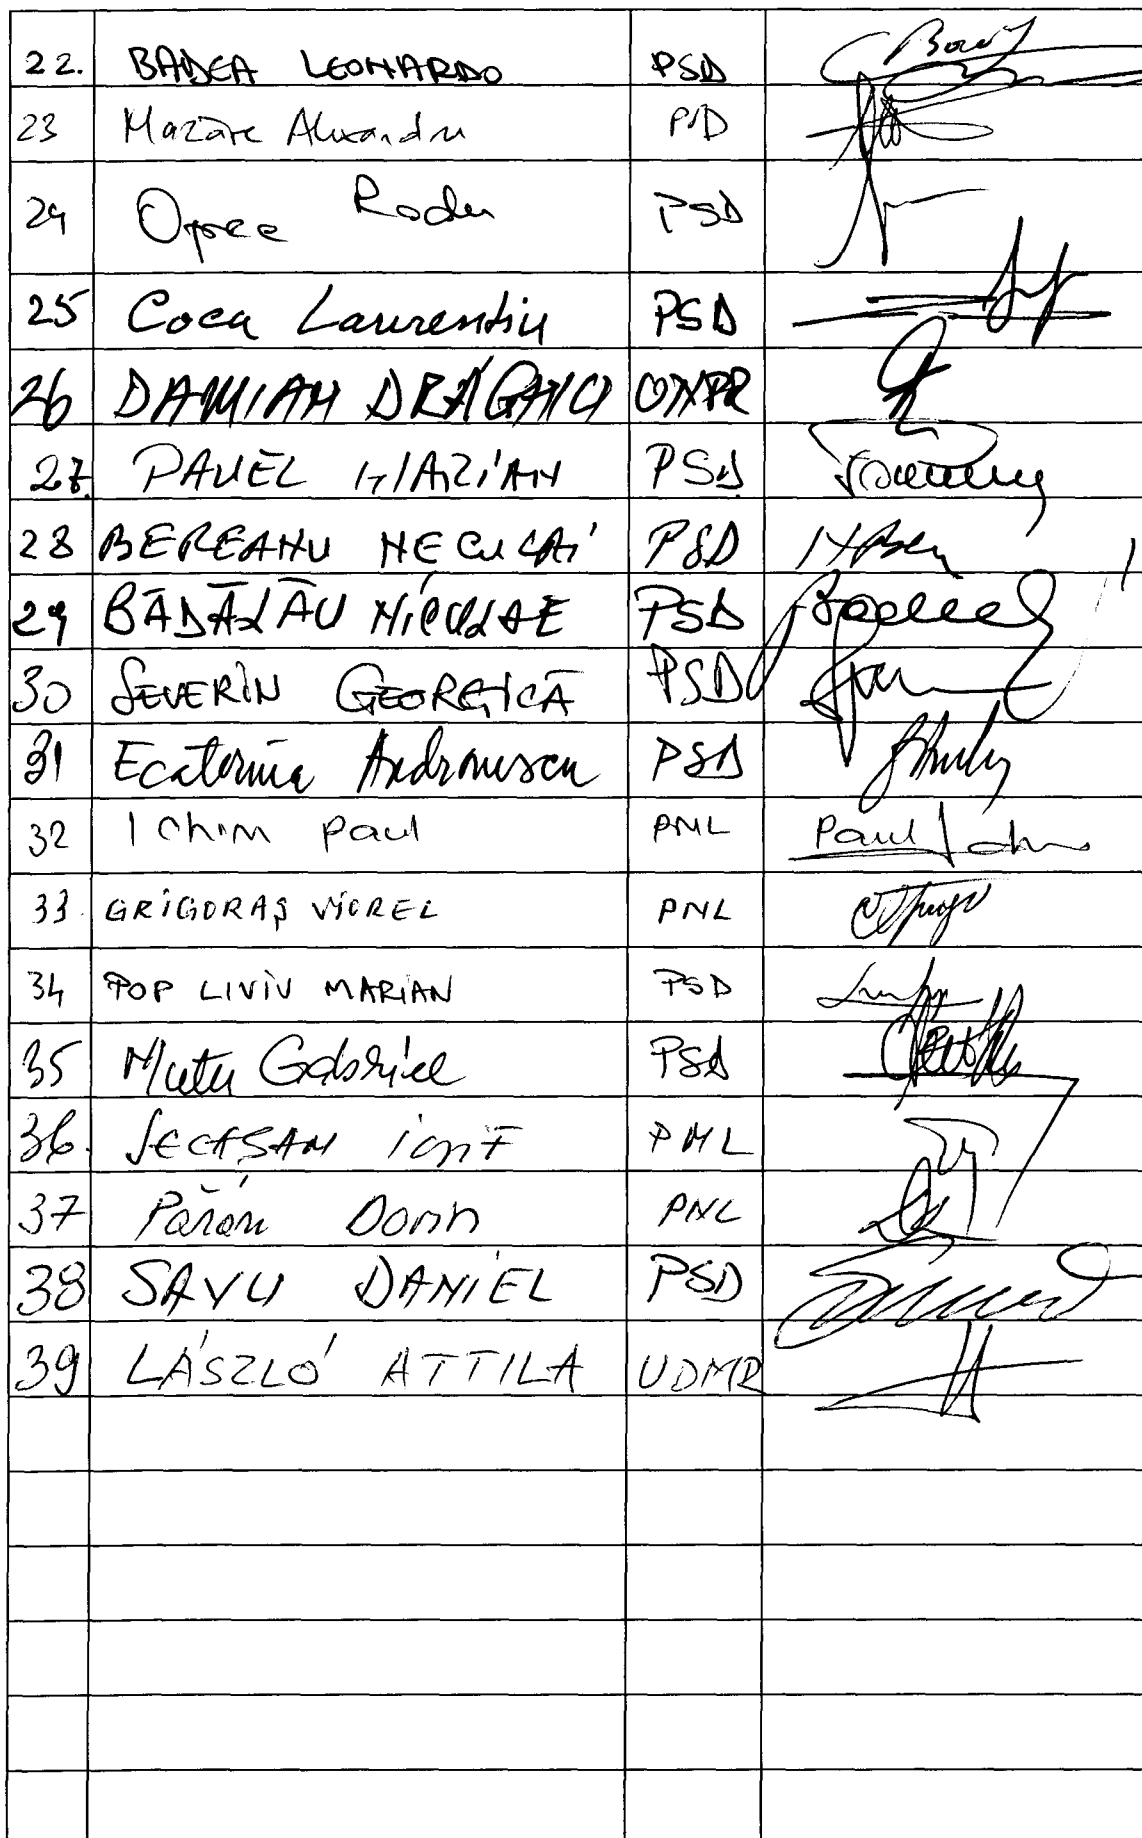 22. BADEA LEONARDO PSD
23 Mazăre Alexandru PSD
24 Oprea Radu PSD
25 Coca Laurențiu PSD
26 DAMIAN DRĂGHICI UNPR
27. PAVEL MARIAN PSD
28 BEREANU NECULAI PSD
29 BĂDĂLĂU NICULAE PSD
30 SEVERIN GEORGICĂ PSD
31 Ecaterina Andronescu PSD
32 Ichim Paul PNL Paul Ichim
33. GRIGORAȘ VIOREL PNL
34 POP LIVIU MARIAN PSD
35 Mutu Gabriel PSD
36. SECĂȘAN IOSIF PNL
37 Păran Dorin PNL
38 SAVU DANIEL PSD
39 LÁSZLÓ ATTILA UDMR